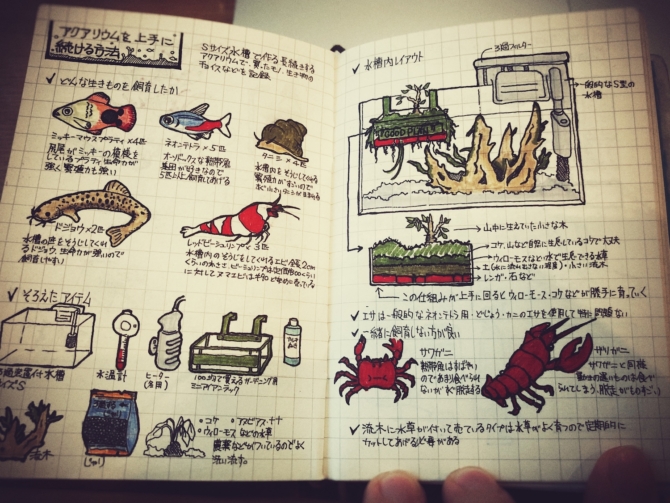 アクアリウムを上手に
続ける方法
Sサイズ水槽で作る長続きする
アクアリウムで、買ったモノ、生き物の
チョイスなどを記録
✓ どんな生きものを飼育したか
ミッキーマウスプラティ×4匹
尻尾がミッキーの模様を
しているプラティ生命力が
強く繁殖力も強い
ネオンテトラ×5匹
オーソドックスな熱帯魚
集団が好きなので
5匹以上飼育してあげる
タニシ×4匹
水槽内をそうじしてくれる
ドジョウ×2匹
水槽の底をそうじしてくれ
るドジョウ、生命力が強いので
飼育しやすい
レッドビーシュリンプ×3匹
水槽内のそうじをしてくれるエビ全長2cm
くらいの大きさ、ビーシュリンプは
✓ そろえたアイテム
水槽
サイズS
水温計
ヒーター
(冬用)
100均で買えるガーデニング用
ミニアイアンラック
流木
じゃり
・コケ ・アヌビアス・ナナ
・ウィローモスなどの水草
農薬などがついているのでよく
洗い流す。
✓ 水槽内レイアウト
フィルター
一般的なSサイズの
水槽
GOOD PLANTS
山中に生えていた小さな木
コケ、山など自然に生息しているコケで大丈夫
ウィローモスなどの水中で生息できる水草
土(水に流れ出ない程度)・小さい流木
レンガ・石など
この仕組みが上手に回るとウィローモス・コケなどが勝手に育っていく
✓ エサは一般的なネオンテトラ用・どじょう・カニのエサを使用して特に問題ない
✓ 一緒に飼育しない方が良い
サワガニ
熱帯魚はすばやい
のであまり食べられ
ないがすぐ脱走する
ザリガニ
サワガニと同様
動きの遅いものは食べ
られてしまう、脱走がものすごい
✓ 流木に水草が付いて売ているタイプは水草がよく育つので定期的に
カットしてあげる必要がある